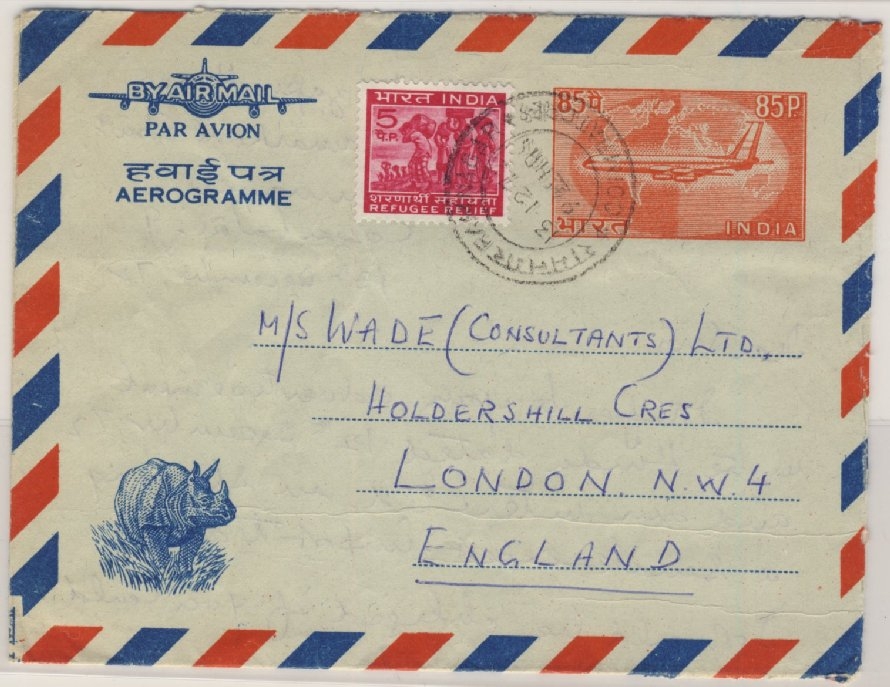 BY AIR MAIL
PAR AVION
हवाई पत्र
AEROGRAMME
भारत INDIA
5
पै. P.
शरणार्थी सहायता
REFUGEE RELIEF
85पै 85P.
भारत INDIA
M/S WADE (CONSULTANTS) LTD.,
HOLDERSHILL CRES
LONDON. N.W.4
ENGLAND